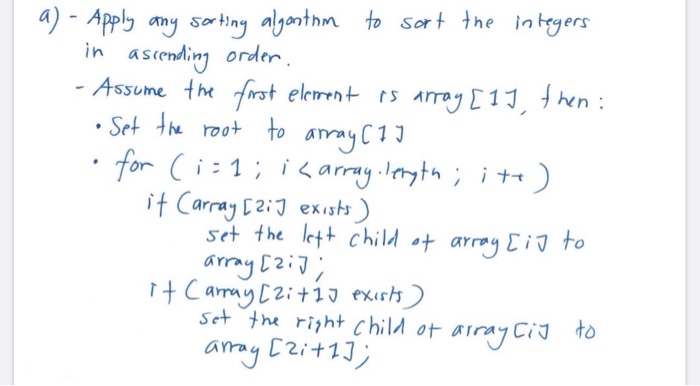 a) - Apply any sorting algorithm to sort the integers
in ascending order.
- Assume the first element is array [1], then :
• Set the root to array [1]
• for ( i = 1 ; i < array.length ; i ++ )
if (array [2i] exists)
set the left child of array [i] to
array [2i] ;
if (array [2i+1] exists)
set the right child of array [i] to
array [2i+1] ;